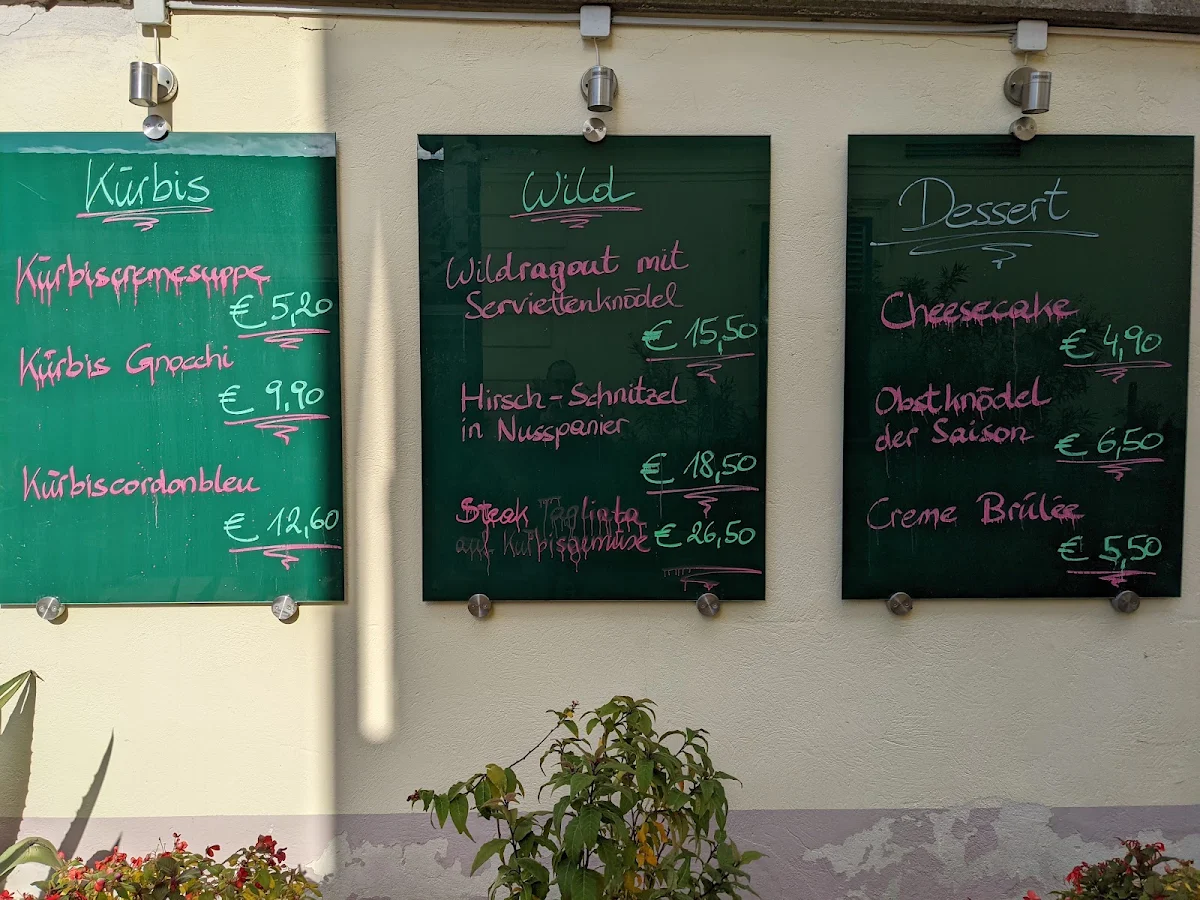 Kürbis
Kürbiscremesuppe
€ 5,20
Kürbis Gnocchi
€ 9,90
Kürbiscordonbleu
€ 12,60
Wild
Wildragout mit
Serviettenknödel
€ 15,50
Hirsch-Schnitzel
in Nusspanier
€ 18,50
Steak Tagliata
auf Kürbisgemüse € 26,50
Dessert
Cheesecake
€ 4,90
Obstknödel
der Saison
€ 6,50
Creme Brûlée
€ 5,50